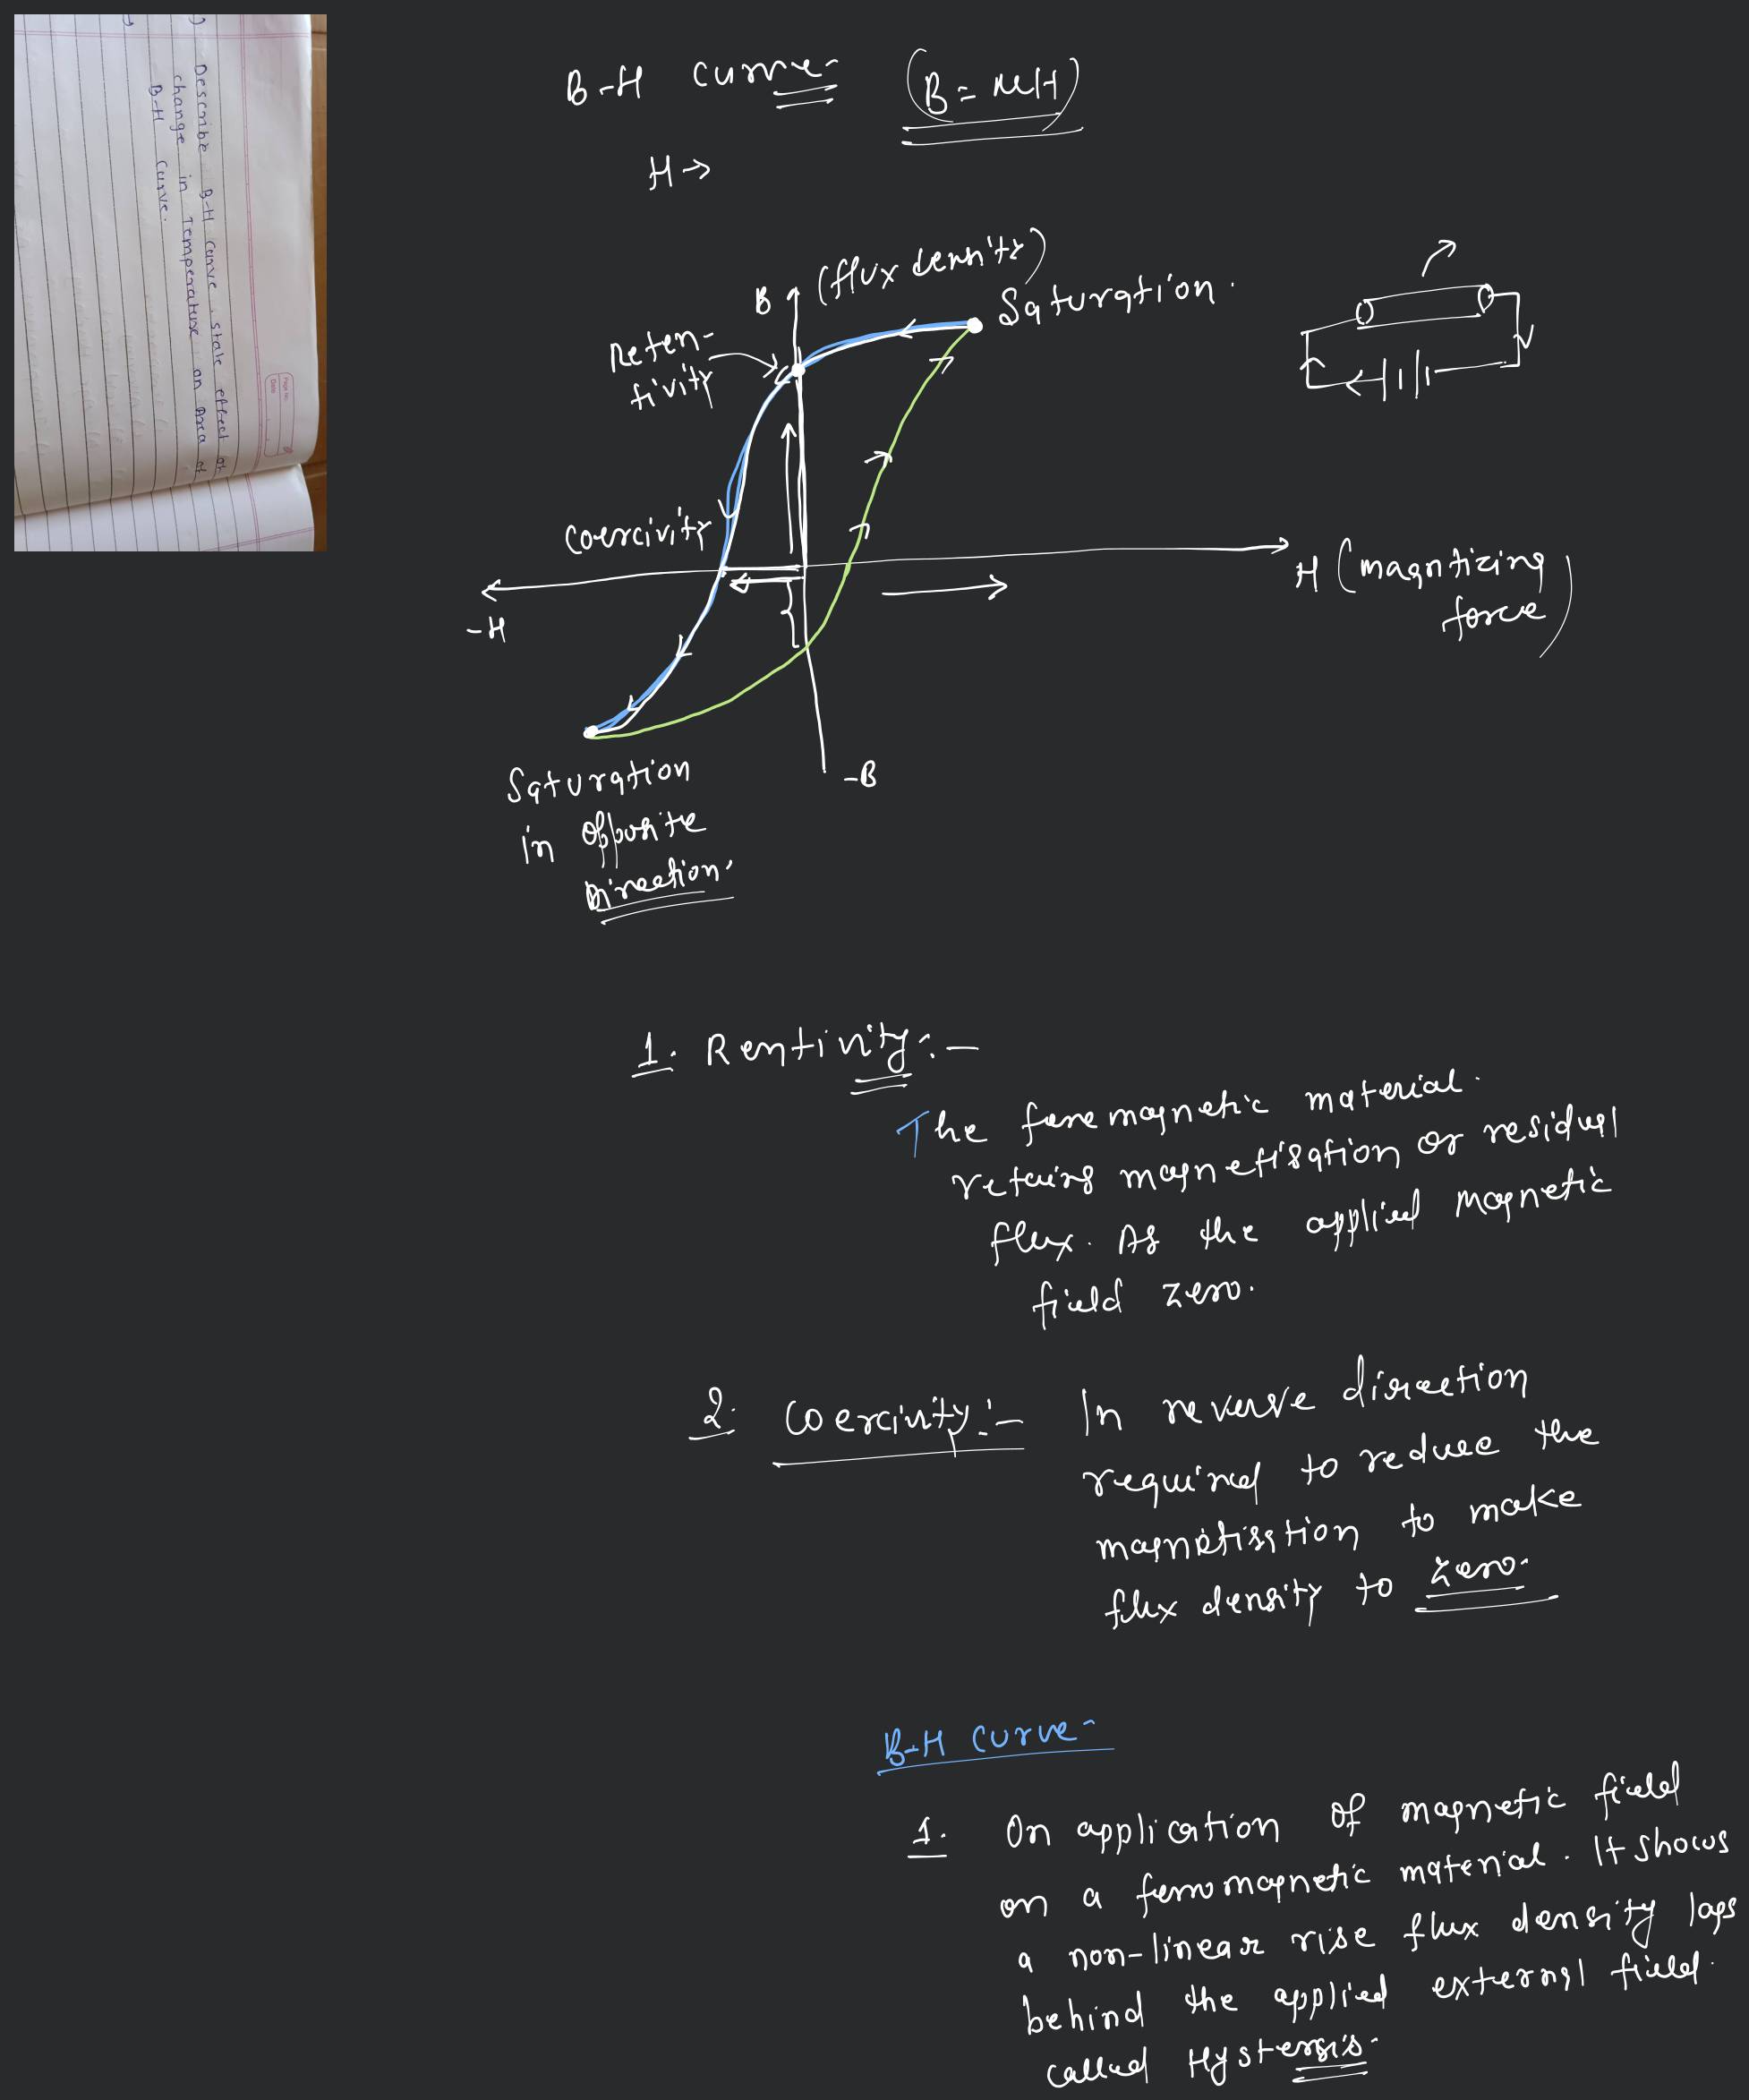 Page No.
Date
Describe B-H Curve, state effect of
change in Temperature on Area of
B-H Curve.
B-H curve- (B = μH)
H→
B (flux density)
Saturation.
Reten-
tivity
Coercivity
H (magntizing
force)
-H
-B
Saturation
in opposite
Direction.
1. Rentivity:-
The ferremagnetic material.
retains magnetisation or residual
flux. As the applied magnetic
field zero.
2. Coercivity:- In reverse direction
required to reduce the
magnetisstion to make
flux density to zero.
B-H curve-
1. On application of magnetic field
on a ferromagnetic material. It shows
a non-linear rise flux density lags
behind the applied external field.
called Hysteresis.